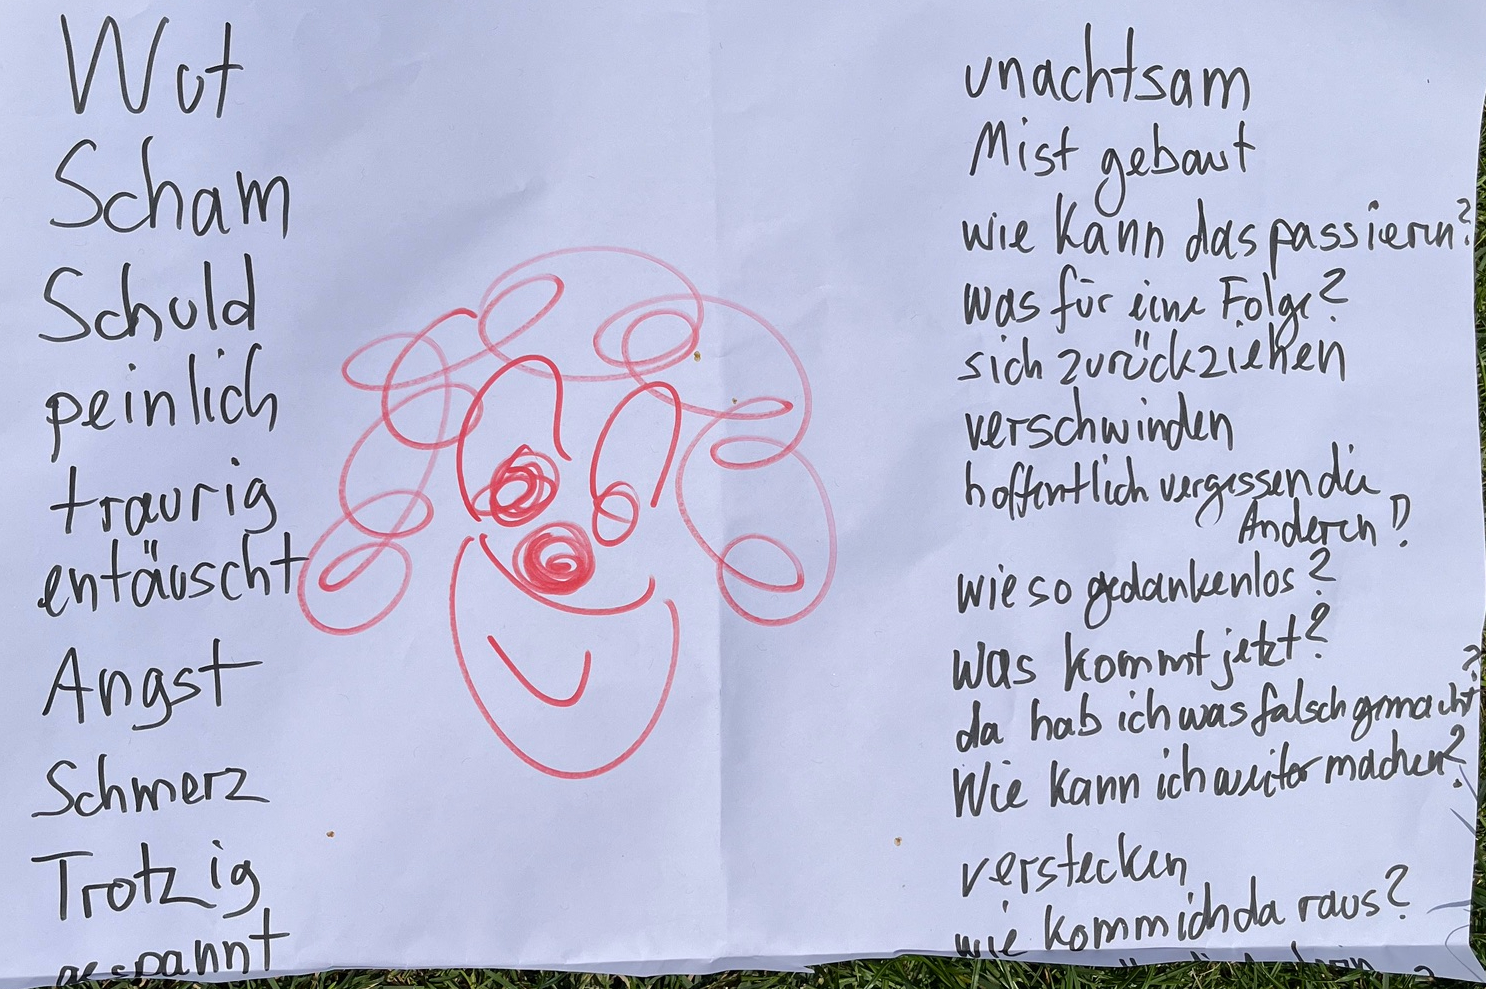 Wut
Scham
Schuld
peinlich
traurig
entäuscht
Angst
Schmerz
Trotzig
gespannt
unachtsam
Mist gebaut
wie kann das passieren?
was für eine Folge?
sich zurückziehen
verschwinden
hoffentlich vergessen die
Anderen!?
wieso gedankenlos?
was kommt jetzt?
da hab ich was falsch gemacht?
Wie kann ich weiter machen?
verstecken
wie komm ich da raus?